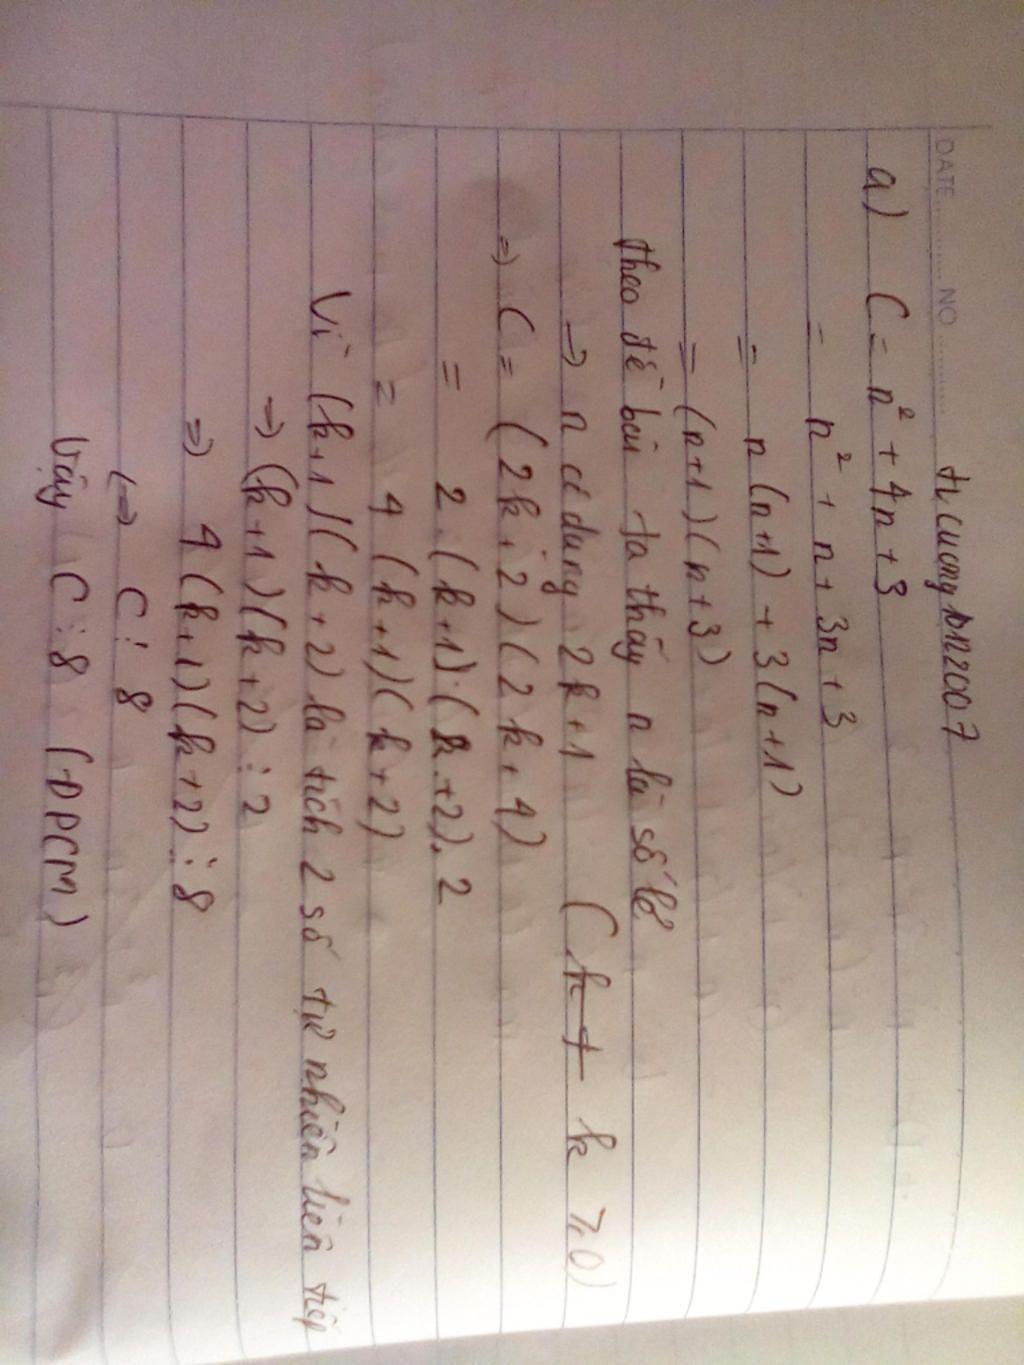 DATE NO
a) C = n² + 4n + 3
= n² + n + 3n + 3
= n(n+1) + 3(n+1)
= (n+1)(n+3)
theo đề bài ta thấy n là số lẻ
→ n có dạng 2k+1 (k+ k ≥ 0)
=> C = (2k+2)(2k+4)
= 2.(k+1).(k+2).2
= 4(k+1)(k+2)
Vì (k+1)(k+2) là tích 2 số tự nhiên liên tiếp
=> (k+1)(k+2) ⋮ 2
=> 4(k+1)(k+2) ⋮ 8
<=> C ⋮ 8
Vậy C ⋮ 8 (ĐPCM)